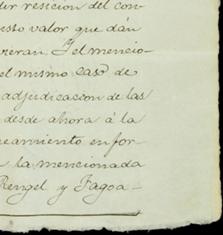 dir resicion del con-
usto valor que dán
reran. I el mencio-
el mismo caso de
adjudicacion de las
desde ahora á la
neamiento en for-
la mencionada
Rengel y Fagoa-